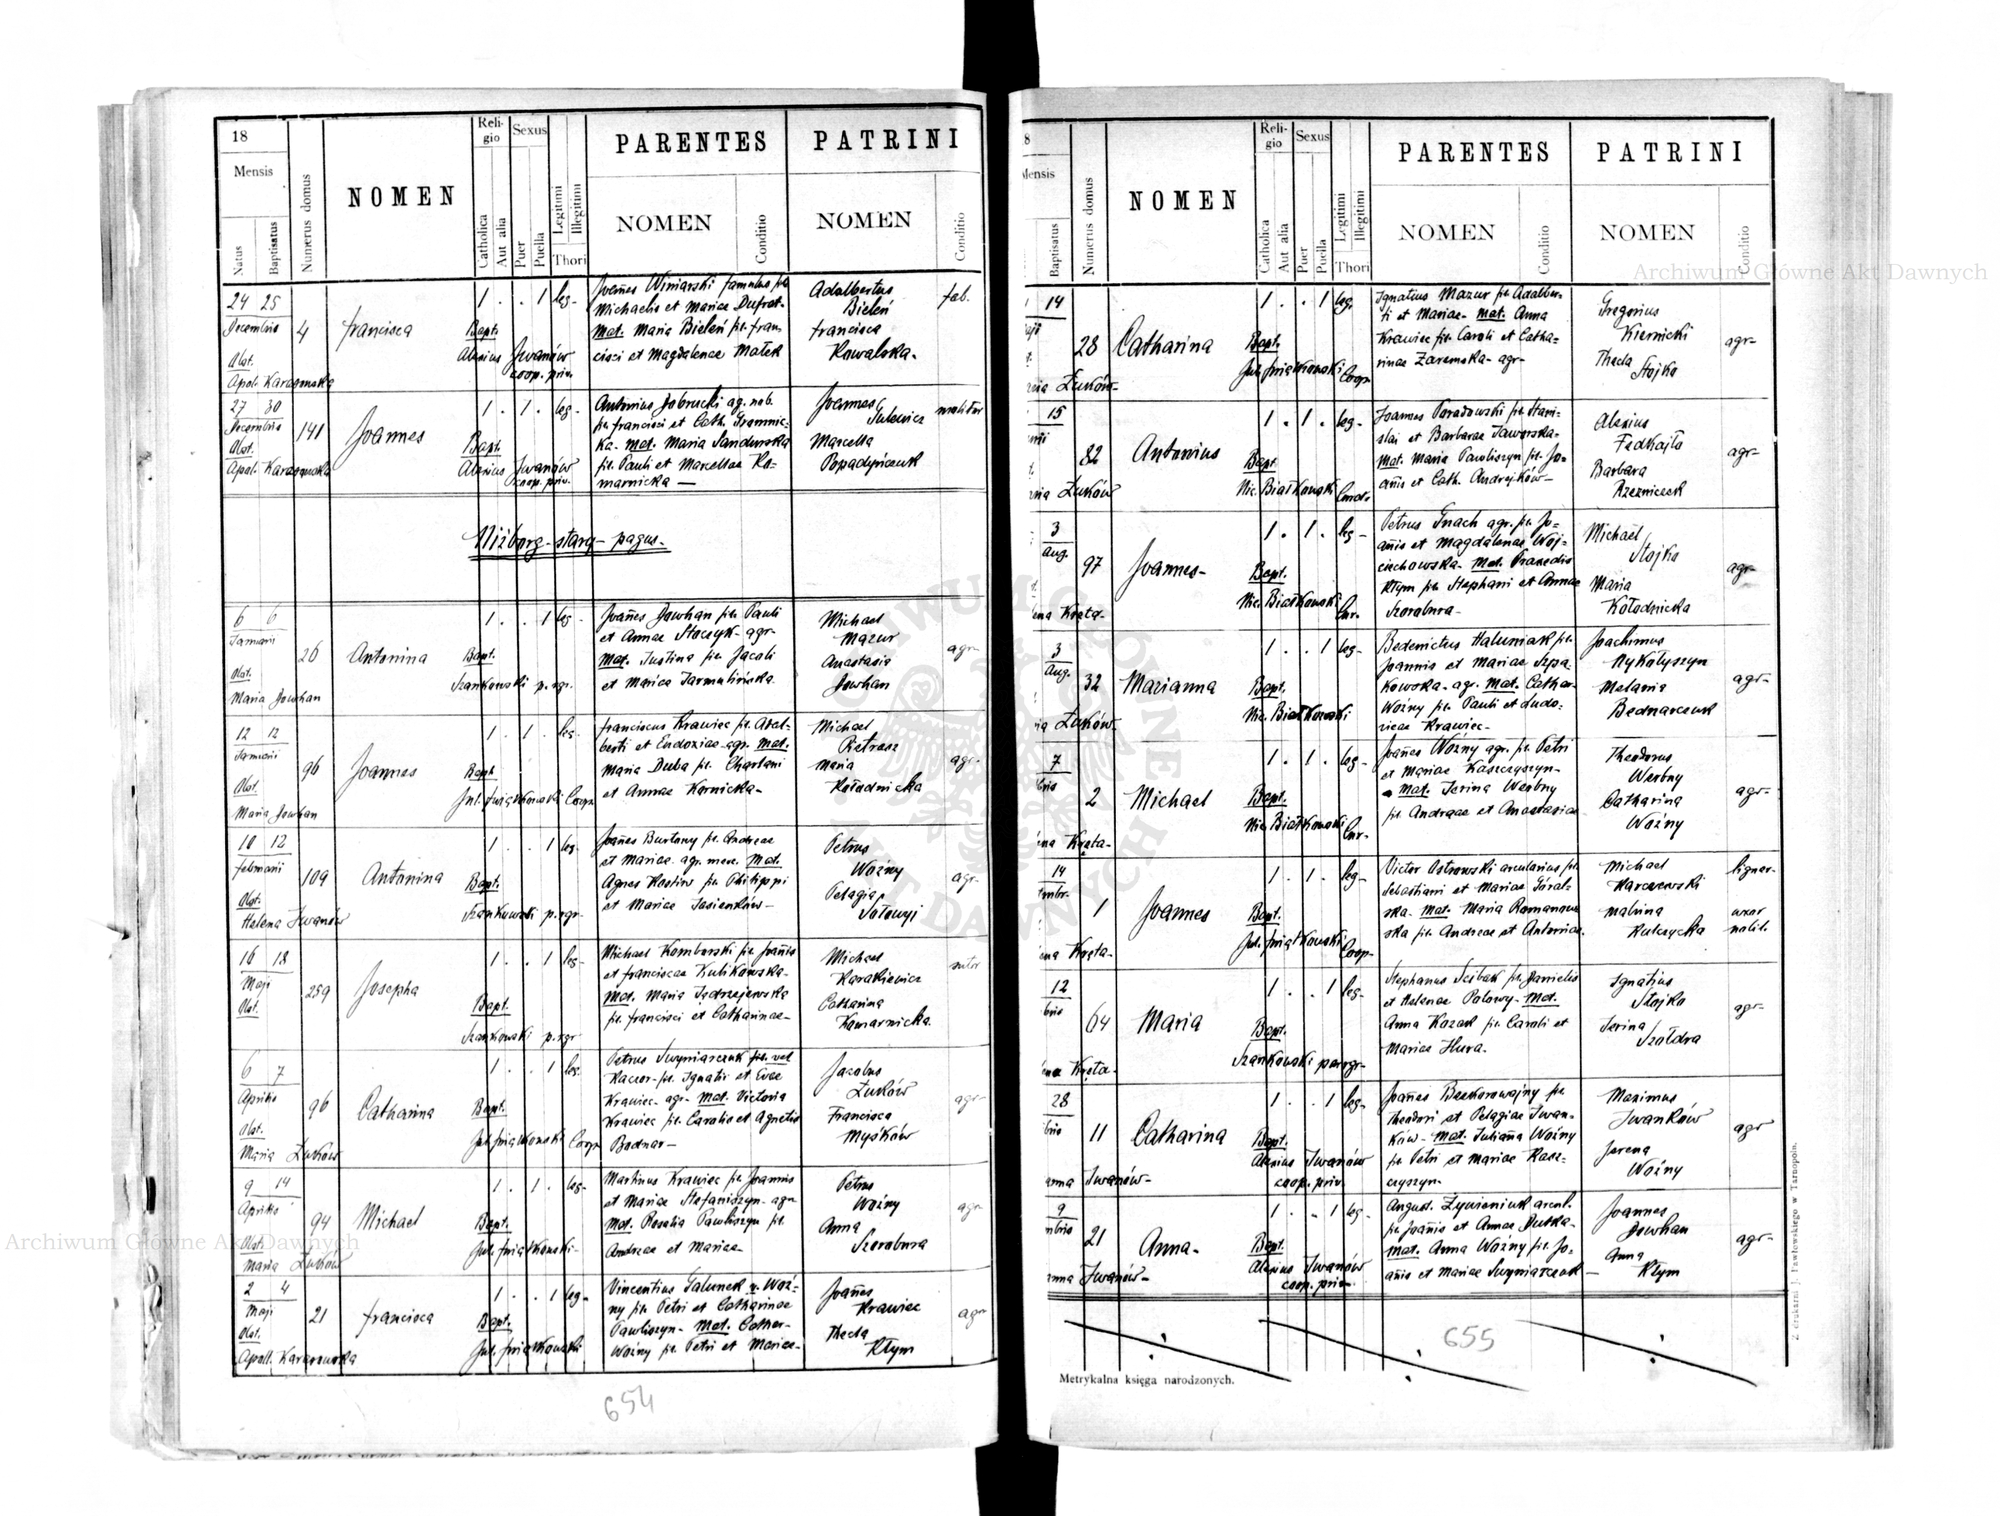 18
Mensis
Natus
Baptisatus
Numerus domus
NOMEN
Religio
Catholica
Aut alia
Sexus
Puer
Puella
Legitimi
Illegitimi
Thori
PARENTES
NOMEN
Conditio
PATRINI
NOMEN
Conditio
24 25
Decembris
Obst.
Apol. Karaomska
4
Francisca
1 . . 1 leg-
Bapt.
Alexius Jwanów
coop. priv.
Joañes Winiarski famulus fil.
Michaelis et Mariae Dufrat-
Mat. Maria Bieleń fil. Fran-
cisci et Magdalenae Małek
Adalbertus
Bieleń
Francisca
Kowalska-
fab.
27 30
Decembris
Obst.
Apol. Karaomska
141
Joannes
1 . 1 . leg-
Bapt.
Alexius Jwanów
coop. priv.
Antonius Jabrucki ag.
fil. Francisci et Cath.
ka- Mat. Maria Sandurska
fil. Pauli et Marcellae Ko-
marnicka —
Joannes
Marcella
Popadyńczuk
molitor
Niżborg-stary- pagus-
6 6
Januarii
Obst.
Maria Jowhan
26
Antonina
1 . . 1 leg-
Bapt.
Szankowski p. rgr.
Joañes Jowhan fil. Pauli
et Annae Stoczyk- agr-
Mat. Justina fil. Jacobi
et Mariae Jarmulińska
Michael
Mazur
Anastasia
Jowhan
agr-
12 12
Januarii
Obst.
Maria Jowhan
96
Joannes
1 . 1 . leg.
Bapt.
Jul. Świątkowski Coop.
Franciscus Krawiec fil. Adal-
berti et Eudoxiae- agr. Mat.
Maria Duba fil. Charlani
et Annae Kornicka-
Michael
Pietrasz
Maria
Kołodnicka
agr-
10 12
Februarii
Obst.
Helena Jwanów
109
Antonina
1 . . 1 leg.
Bapt.
Szankowski p. rgr-
Joañes Burtany fil. Andreae
et Mariae. agr. merc. Mat.
Agnes Kostiw fil. Philippi
et Mariae Jasienków-
Petrus
Woźny
Pelagia
Sołowyj
agr-
16 18
Maji
Obst.
259
Josepha
1 . . 1 leg-
Bapt.
Szankowski p. rgr
Michael Komborski fil. Joañis
et Franciscae Kulikowska-
Mat. Maria Jędrzejewska
fil. Francisci et Catharinae-
Michael
Karakiewicz
Catharina
Komarnicka.
sutor
6 7
Aprilis
Obst.
Maria Żuków
96
Catharina
1 . . 1 leg.
Bapt.
Jul. Świątkowski Coop
Petrus Swyniarczuk fil. vel
Kaczor- fil. Ignatii et Evae
Krawiec- agr- Mat. Victoria
Krawiec fil. Carolis et Agnetis
Bodnar-
Jacobus
Żuków
Francisca
Myśków
agr-
9 14
Aprilis
Obst.
Maria Żuków
94
Michael
1 . 1 . leg-
Bapt.
Jul. Świątkowski-
Martinus Krawiec fil. Joannis
et Mariae Stefaniszyn- agr-
Mat. Rosalia Pawliszyn fil.
Andreae et Mariae-
Petrus
Woźny
Anna
Szorobura
agr-
2 4
Maji
Obst.
Apoll. Karaomska
21
Francisca
1 . . 1 leg-
Bapt.
Jul. Świątkowski
Vincentius Galunek v. Woź-
ny fil. Petri et Catharinae
Pawliszyn- Mat. Cathar-
Woźny fil. Petri et Mariae-
Joañes
Krawiec
Thecla
Kłym
agr-
654
8
Mensis
Baptisatus
Numerus domus
NOMEN
Religio
Catholica
Aut alia
Sexus
Puer
Puella
Legitimi
Illegitimi
Thori
PARENTES
NOMEN
Conditio
PATRINI
NOMEN
Conditio
14
Żuków-
28
Catharina
1 . . 1 leg.
Bapt.
Jul. Świątkowski Coop.
Ignatius Mazur fil. Adalber-
ti et Mariae- Mat. Anna
Krawiec fil. Caroli et Catha-
rinae Zaremska- agr-
Gregorius
Kiernicki
Thecla
Stojko
agr-
15
Żuków
82
Antonius
1 . 1 . leg-
Bapt.
Nic. Białkowski
Joannes Paradowski fil. Stani-
slai et Barbarae Jaworska-
Mat. Maria Pawliszyn fil. Jo-
añis et Cath. Andrejków-
Alexius
Fedkajło
Barbara
Rzeźniczek
agr-
3
Aug.
Kręta-
97
Joannes-
1 . 1 . leg-
Bapt.
Nic. Białkowski
Cur-
Petrus Gnach agr. fil. Jo-
añis et Magdalenae Woj-
ciechowska- Mat. Praxedis
Kłym fil. Stephani et Annae
Szorobura-
Michael
Stojko
Maria
Kołodnicka
agr-
3
Aug.
Żuków-
32
Marianna
1 . . 1 leg-
Bapt.
Nic. Białkowski
Benedictus Haluniak fil.
Joannis et Mariae Szpa-
kowska- agr. Mat. Cathar-
Woźny fil. Pauli et Ludo-
vicae Krawiec-
Joachimus
Mykołyszyn
Melania
Bednarczuk
agr-
7
Kręta-
2
Michael
1 . 1 . leg-
Bapt.
Nic. Białkowski Cur-
Joañes Woźny agr. fil. Petri
et Mariae Kaszczyszyn-
Mat. Irina Werbny
fil. Andreae et Anastasiae
Theodorus
Werbny
Catharina
Woźny
agr-
14
Kręta-
1
Joannes
1 . 1 . leg-
Bapt.
Jul. Świątkowski Coop-
Victor Ostrowski arcularius fil.
Sebastiani et Mariae Góral-
ska- Mat. Maria Romanow-
ska fil. Andreae et Antoniae-
Michael
Harczewski
Malvina
Kulczycka
lignar-
uxor
molit.
12
Kręta-
64
Maria
1 . . 1 leg-
Bapt.
Szankowski par. rgr-
Stephanus Ścibak fil. Danielis
et Helenae Polowy- Mat.
Anna Kozak fil. Caroli et
Mariae Hura.
Ignatius
Stojko
Irina
Szołdra
agr-
28
Jwanów-
11
Catharina
1 . . 1 leg-
Bapt.
Alexius Jwanów
coop. priv.
Joañes Bezkorowajny fil.
Theodori et Pelagiae Jwan-
ków- Mat. Juliaña Woźny
fil. Petri et Mariae Kasz-
czyszyn-
Maximus
Jwanków
Jrena
Woźny
agr
9
Jwanów-
21
Anna-
1 . . 1 leg-
Bapt.
Alexius Jwanów
coop. priv-
August. Żywieniuk arcul.
fil. Joañis et Annae Dutka-
Mat. Anna Woźny fil. Jo-
añis et Mariae Swyniarczuk-
Joannes
Jowhan
Anna
Kłym
agr-
655
Metrykalna księga narodzonych.
Z drukarni J. Pawłowskiego w Tarnopolu.
Archiwum Główne Akt Dawnych
Archiwum Główne Akt Dawnych
ARCHIWUM GŁÓWNE AKT DAWNYCH